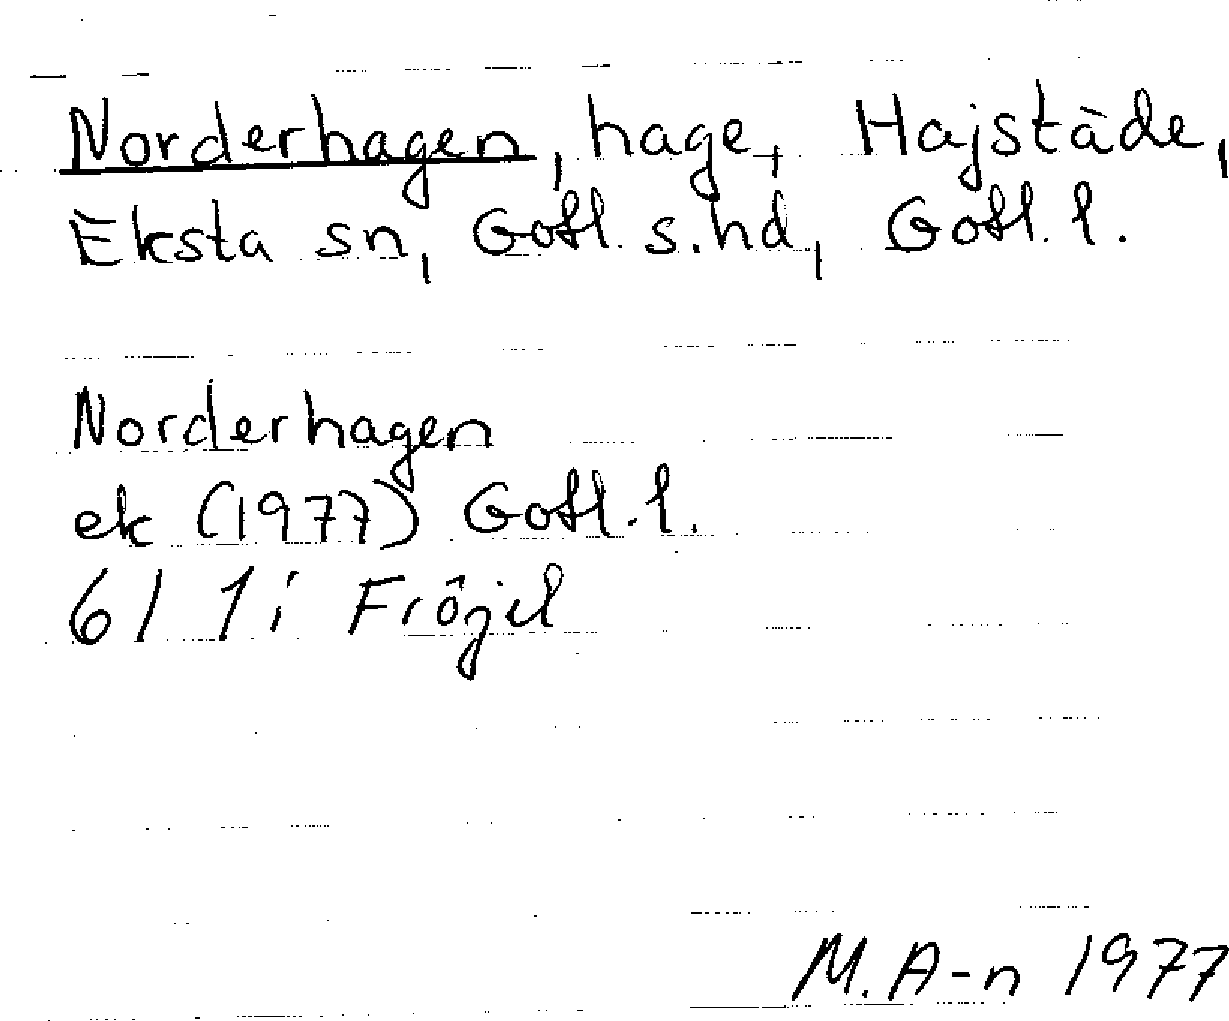 Norderhagen, hage, Hajstäde,
Eksta sn, Gotl. s. hd, Gotl. l.
Norderhagen
ek (1977) Gotl. l.
6 I 1 i Fröjel
M. A-n 1977